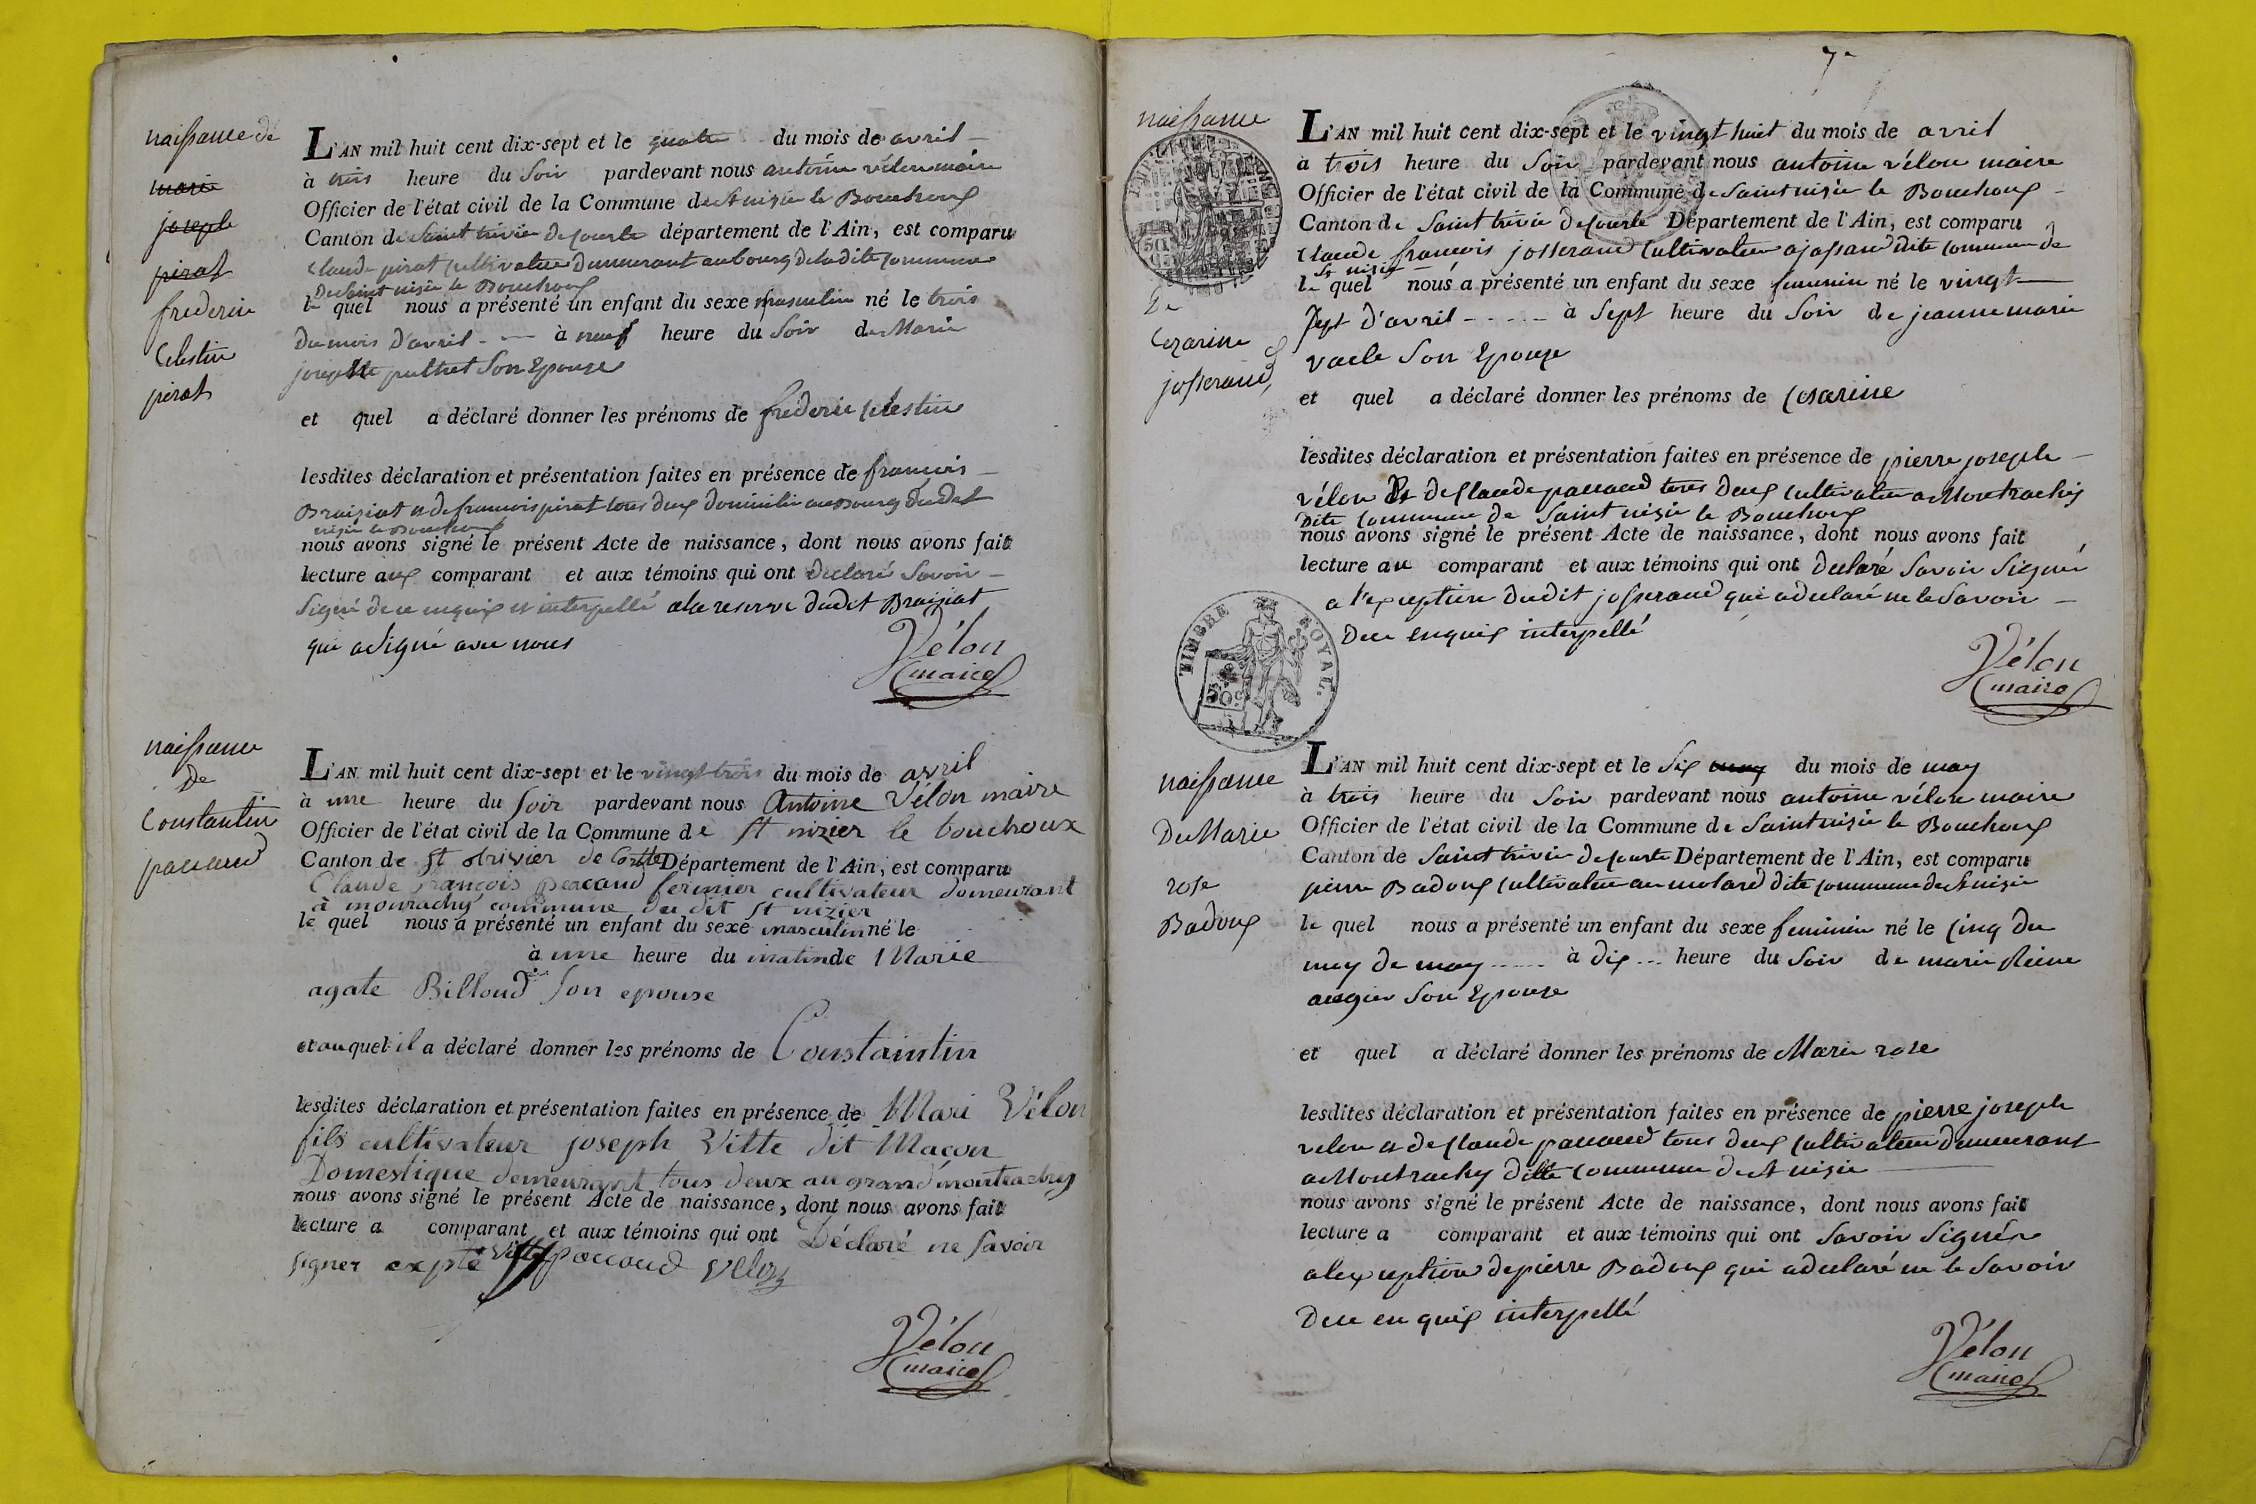 naissance de
marie
joseph
pirat
frederic
Celestin
pirat
L'AN mil huit cent dix-sept et le quatre du mois de avril
à trois heure du Soir pardevant nous antoine vélon maire
Officier de l'état civil de la Commune de St nizie le Bouchoux
Canton de Saint trivie de Courte département de l'Ain, est comparu
Claude pirat Cultivateur Demeurant au bourg de la dite Commune
De Saint nizie le Bouchoux
le quel nous a présenté un enfant du sexe masculin né le trois
Du mois D'avril à neuf heure du Soir de Marie
josephte puthet Son Epouze
et quel a déclaré donner les prénoms de frederic Celestin
lesdites déclaration et présentation faites en présence de francois
Braiziat et de francois pirat tous deux domicilié au Bourg dudit
nizie le Bouchoux
nous avons signé le présent Acte de naissance, dont nous avons fait
lecture aux comparant et aux témoins qui ont declaré Savoir
Signé de ce enquis et interpellé a la reserve dudit Braiziat
qui a Signé avec nous
Vélon
maire
naissance
De
Constantin
paccaud
L'AN mil huit cent dix-sept et le vingt trois du mois de avril
à une heure du soir pardevant nous Antoine Vélon maire
Officier de l'état civil de la Commune de St nizier le bouchoux
Canton de St trivier de Courtte Département de l'Ain, est comparu
Claude François Peacaud fermier cultivateur domeurant
à monrachy commune du dit St nizier
le quel nous a présenté un enfant du sexe masculin né le
à une heure du matin de Marie
agate Billoud son epouse
et auquel il a déclaré donner les prénoms de Constaintin
lesdites déclaration et présentation faites en présence de Mari Vélon
fils cultivateur joseph Vitte dit Maçon
Domestique demeurant tous deux au grand montrachy
nous avons signé le présent Acte de naissance, dont nous avons fait
lecture a comparant et aux témoins qui ont Déclaré ne savoir
signer expté Vitte paccaud Velon
Vélon
maire
7e
naissance
De
Cezarine
josserand
L'AN mil huit cent dix-sept et le vingt huit du mois de avril
à trois heure du Soir pardevant nous antoine vélon maire
Officier de l'état civil de la Commune de Saint nizie le Bouchoux
Canton de Saint trivie de Courte Département de l'Ain, est comparu
Claude francois josserand Cultivateur a jassan dite commune de
St nizie
le quel nous a présenté un enfant du sexe feminin né le vingt
Sept d'avril à Sept heure du Soir de jeanne marie
vacle Son Epouze
et quel a déclaré donner les prénoms de Cesarine
lesdites déclaration et présentation faites en présence de pierre joseph
vélon Et de Claude paccaud tous deux Cultivateur a Montrachis
Dite Commune de Saint nizie le Bouchoux
nous avons signé le présent Acte de naissance, dont nous avons fait
lecture au comparant et aux témoins qui ont declaré Savoir Signé
a l'exception Dudit josserand qui a declaré ne le Savoir
De ce enquis interpellé
TIMBRE ROYAL.
Vélon
maire
naissance
De Marie
rose
Badoux
L'AN mil huit cent dix-sept et le Six may du mois de may
à trois heure du Soir pardevant nous antoine vélon maire
Officier de l'état civil de la Commune de Saint nizie le Bouchoux
Canton de Saint trivie de Courte Département de l'Ain, est comparu
pierre Badoux Cultivateur au molard dite Commune de St nizie
le quel nous a présenté un enfant du sexe feminin né le Cinq du
moy de may à dix heure du Soir de marie Reine
augier Son Epouze
et quel a déclaré donner les prénoms de Marie rose
lesdites déclaration et présentation faites en présence de pierre joseph
velon et de Claude paccaud tous deux Cultivateur demeurant
a Montrachy ditte Commune de St nizie
nous avons signé le présent Acte de naissance, dont nous avons fait
lecture a comparant et aux témoins qui ont Savoir Signér
a lexception de pierre Badoux qui a declaré ne le Savoir
De ce en quis interpellé
Vélon
maire